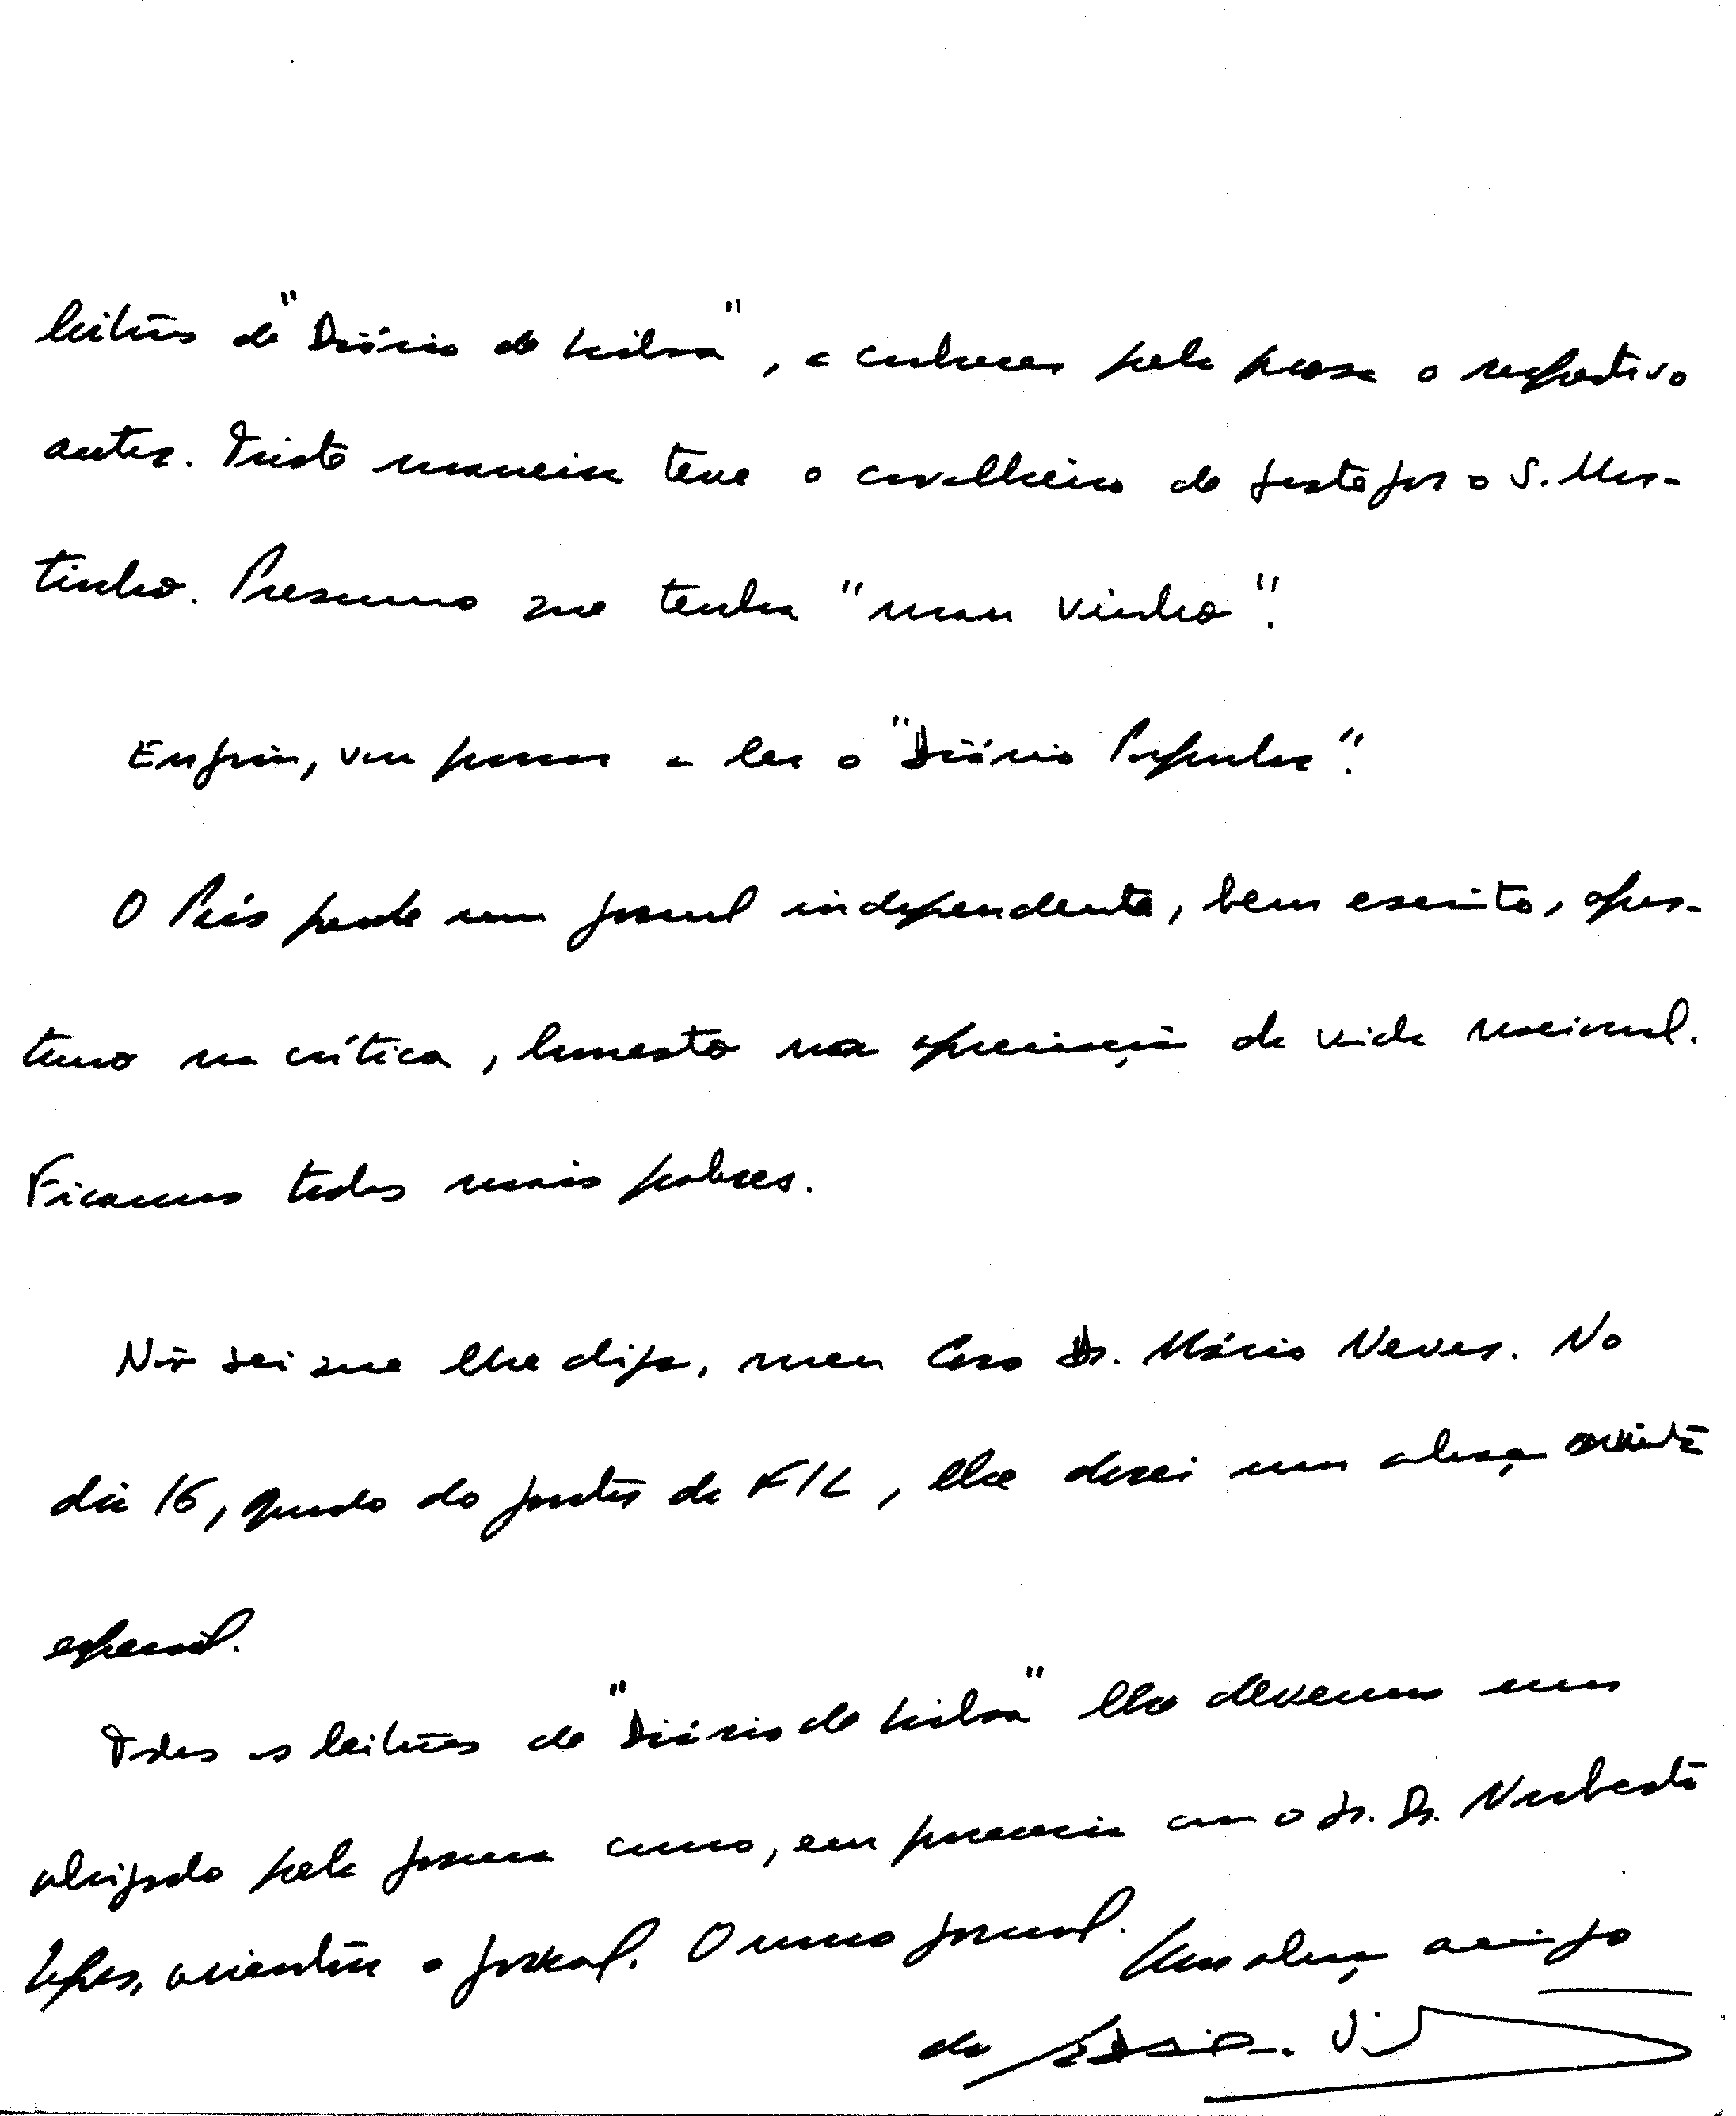 leitores do "Diário de Lisboa", e conhecer pela prosa o respectivo
autor. Triste maneira teve o cavalheiro de festejar o S. Mar-
tinho. Presumo que tenha "mau vinho".
Enfim, vou passar a ler o "Diário Popular".
O País perde um jornal independente, bem escrito, opor-
tuno na crítica, honesto na apreciação da vida nacional.
Ficamos todos mais pobres.
Não sei que lhe diga, meu Caro Dr. Mário Neves. No
dia 16, quando do jantar da FIL, lhe darei um abraço muito
especial.
Todos os leitores do "Diário de Lisboa" lhe devemos um
obrigado pela forma como, em parceria com o Sr. Dr. Norberto
Lopes, orientou o jornal. O nosso jornal. Um abraço amigo
do